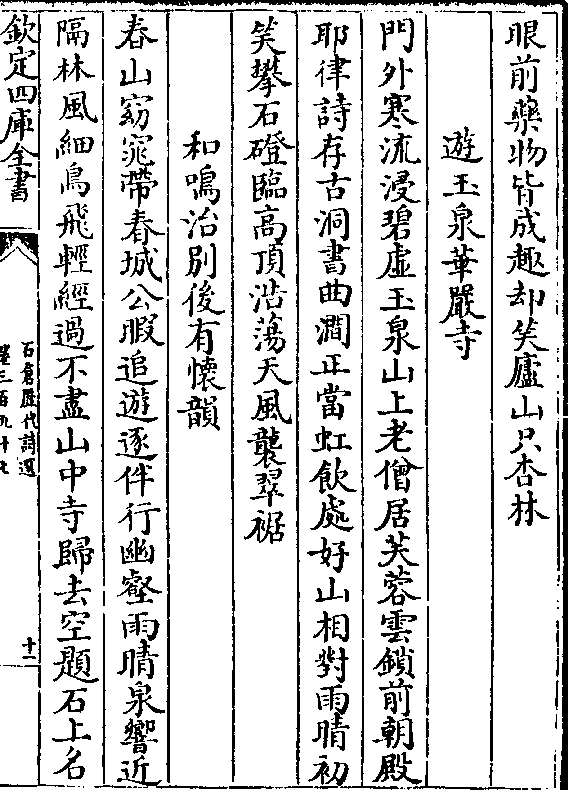 眼前藥物皆成趣却笑廬山只杏林
遊玉泉華嚴寺
門外寒流浸碧虛玉泉山上老僧居芙蓉雲鎖前朝殿
耶律詩存古洞書曲澗正當虹飲處好山相對雨晴初
笑攀石磴臨高頂浩蕩天風襲翠裾
和鳴治別後有懷韻
春山窈窕帶春城公暇追遊逐伴行幽壑雨晴泉響近
隔林風細鳥飛輕經過不盡山中寺歸去空題石上名
欽定四庫全書
石倉歷代詩選
十一